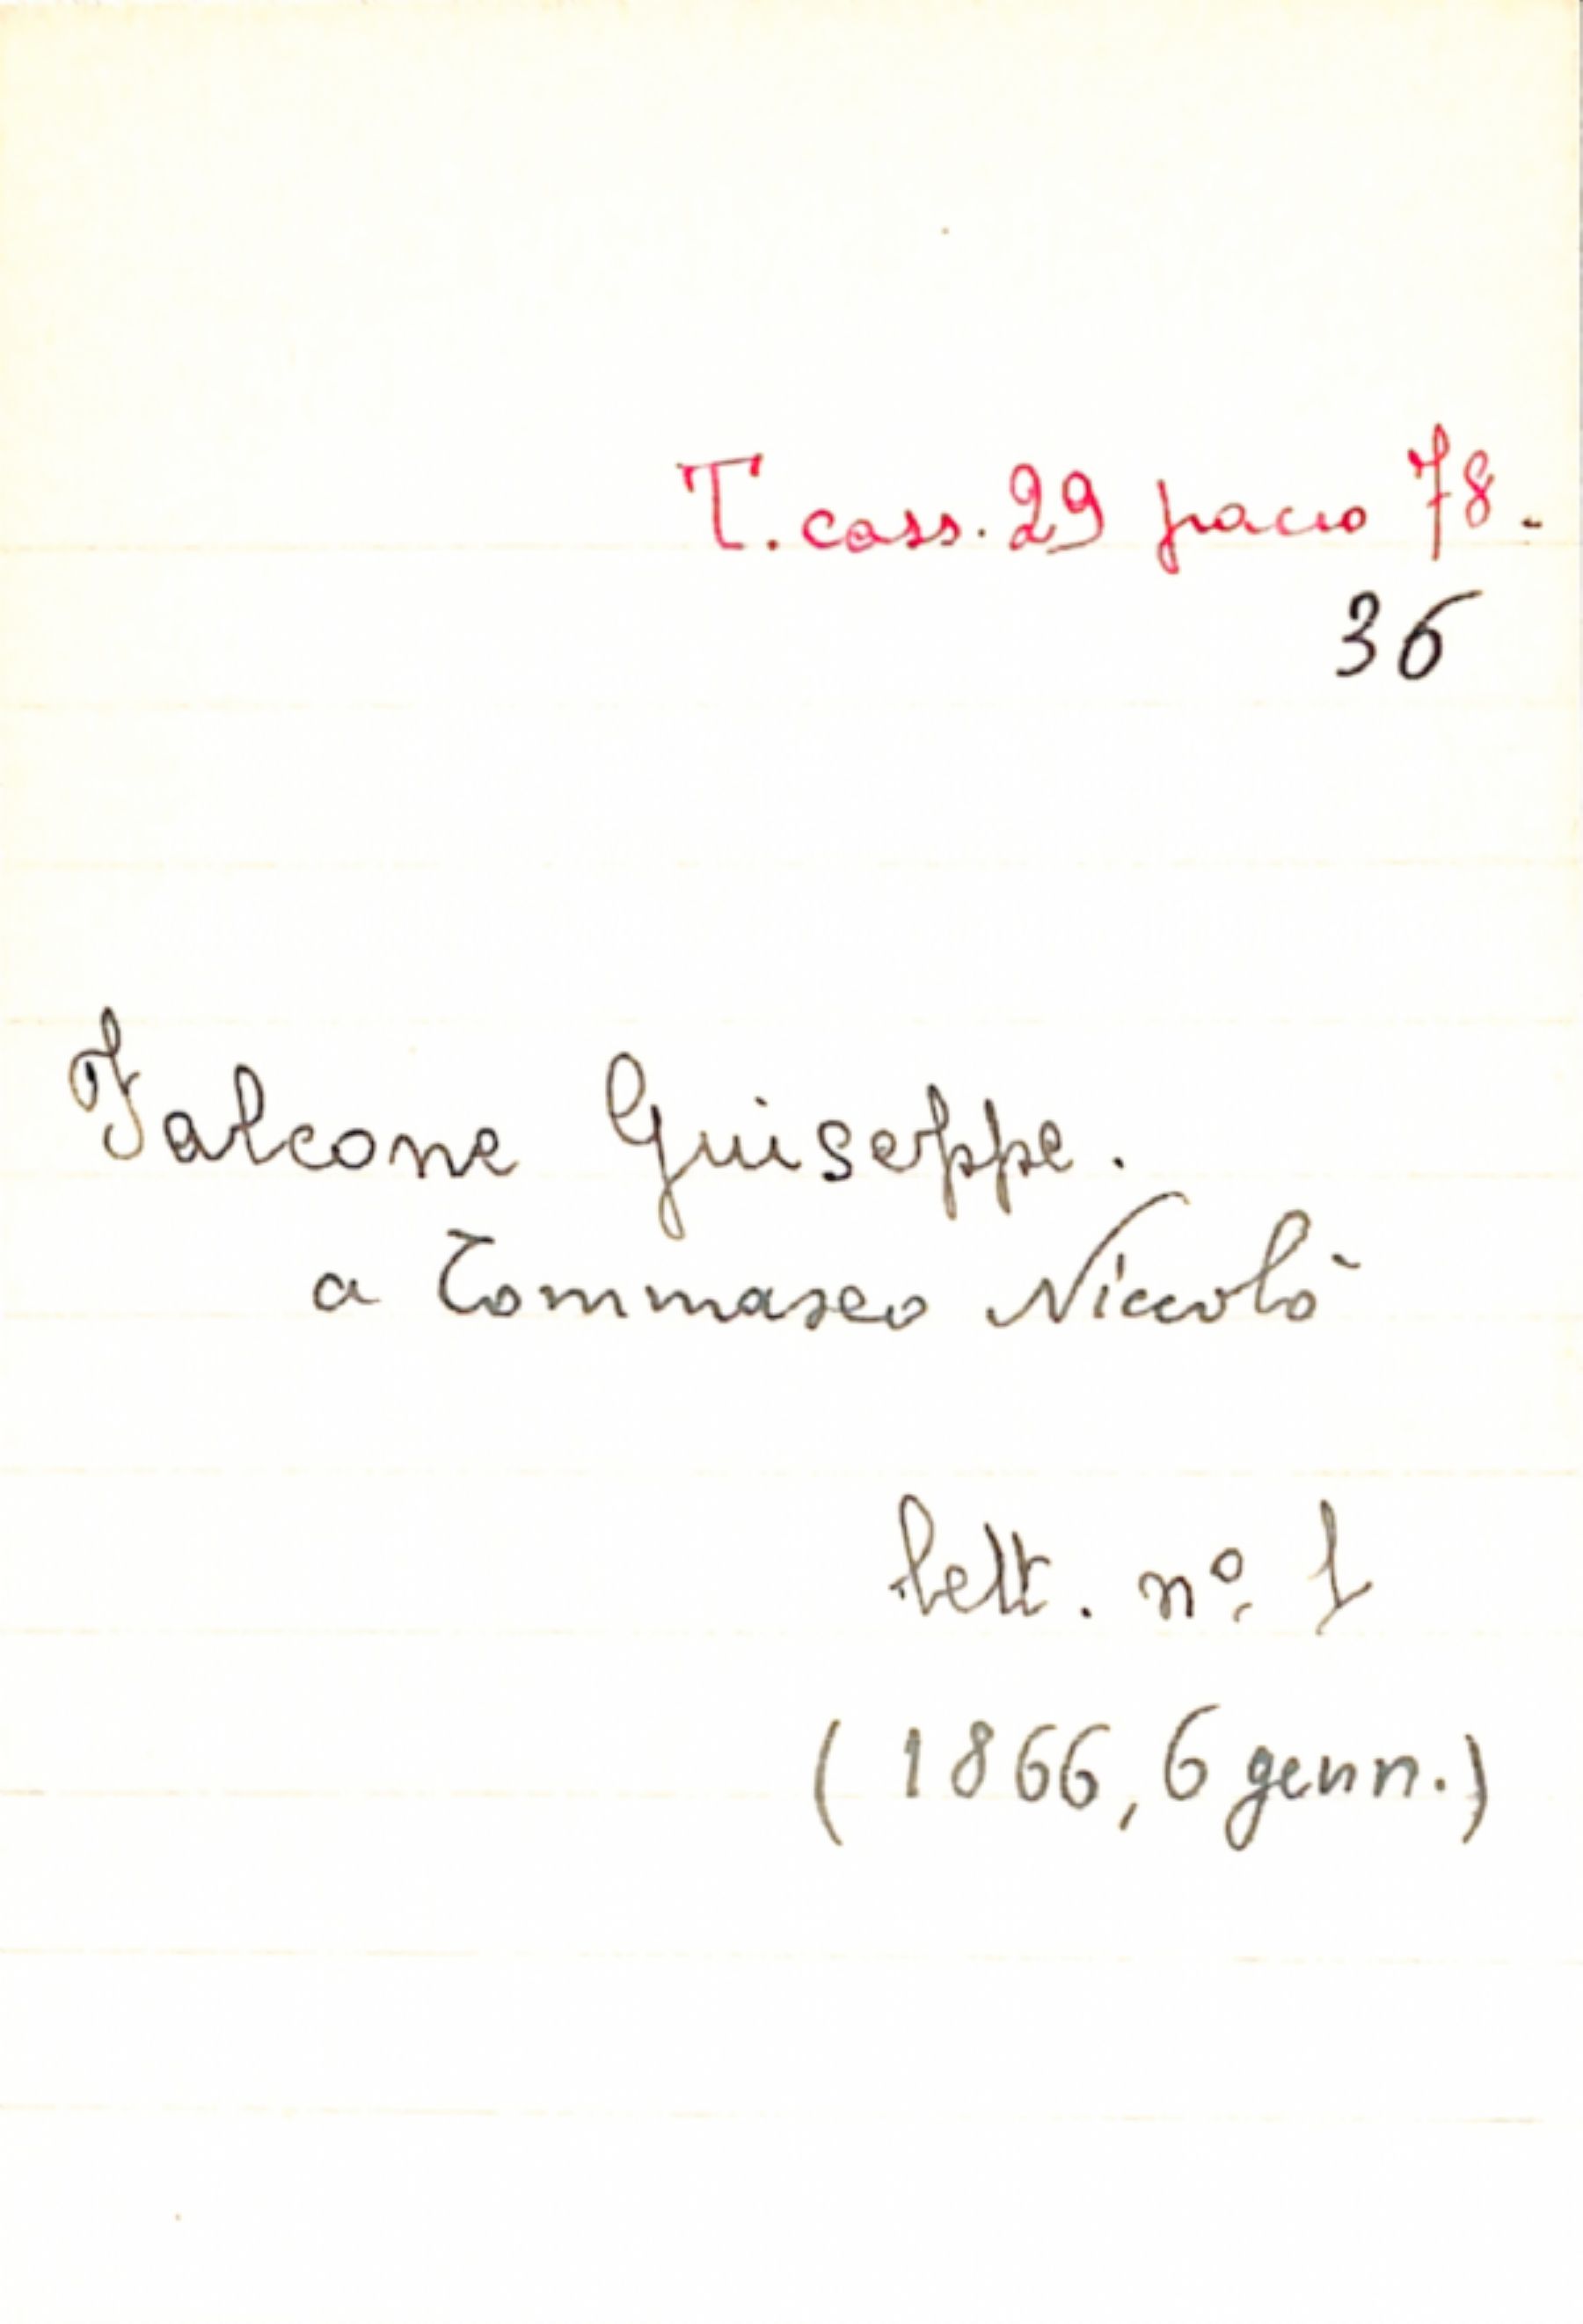 T. cass. 29 pacco 78.
36
Falcone Giuseppe.
a Tommaseo Niccolò
lett. nº 1
(1866, 6 genn.)